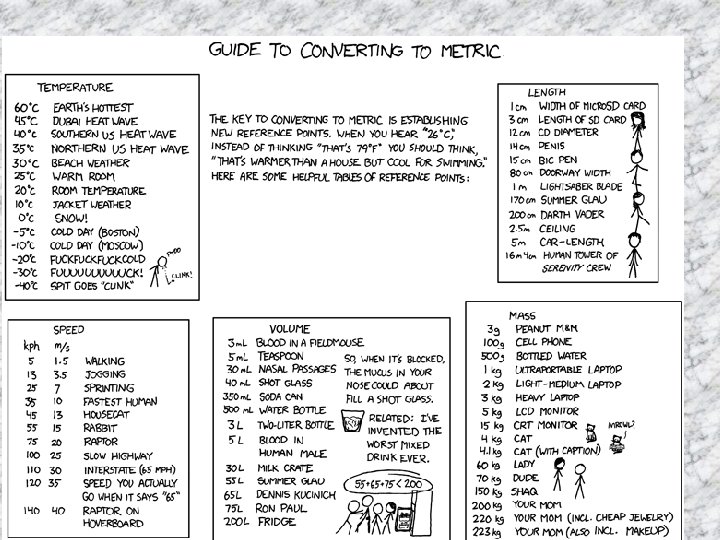 GUIDE TO CONVERTING TO METRIC
TEMPERATURE
60°C EARTH'S HOTTEST
45°C DUBAI HEAT WAVE
40°C SOUTHERN US HEAT WAVE
35°C NORTHERN US HEAT WAVE
30°C BEACH WEATHER
25°C WARM ROOM
20°C ROOM TEMPERATURE
10°C JACKET WEATHER
0°C SNOW!
-5°C COLD DAY (BOSTON)
-10°C COLD DAY (MOSCOW)
-20°C FUCKFUCKFUCKCOLD
-30°C FUUUUUUUUUUCK!
-40°C SPIT GOES "CLINK"
CLINK!
THE KEY TO CONVERTING TO METRIC IS ESTABLISHING
NEW REFERENCE POINTS. WHEN YOU HEAR "26°C,"
INSTEAD OF THINKING "THAT'S 79°F" YOU SHOULD THINK,
"THAT'S WARMER THAN A HOUSE BUT COOL FOR SWIMMING."
HERE ARE SOME HELPFUL TABLES OF REFERENCE POINTS:
LENGTH
1 cm WIDTH OF MICROSD CARD
3 cm LENGTH OF SD CARD
12 cm CD DIAMETER
14 cm PENIS
15 cm BIC PEN
80 cm DOORWAY WIDTH
1 m LIGHTSABER BLADE
170 cm SUMMER GLAU
200 cm DARTH VADER
2.5 m CEILING
5 m CAR-LENGTH
16m 4cm HUMAN TOWER OF
SERENITY CREW
SPEED
kph m/s
5 1.5 WALKING
13 3.5 JOGGING
25 7 SPRINTING
35 10 FASTEST HUMAN
45 13 HOUSECAT
55 15 RABBIT
75 20 RAPTOR
100 25 SLOW HIGHWAY
110 30 INTERSTATE (65 MPH)
120 35 SPEED YOU ACTUALLY
GO WHEN IT SAYS "65"
140 40 RAPTOR ON
HOVERBOARD
VOLUME
3 mL BLOOD IN A FIELDMOUSE
5 mL TEASPOON
30 mL NASAL PASSAGES
40 mL SHOT GLASS
350 mL SODA CAN
500 mL WATER BOTTLE
3 L TWO-LITER BOTTLE
5 L BLOOD IN
HUMAN MALE
30 L MILK CRATE
55 L SUMMER GLAU
65 L DENNIS KUCINICH
75 L RON PAUL
200 L FRIDGE
SO, WHEN IT'S BLOCKED,
THE MUCUS IN YOUR
NOSE COULD ABOUT
FILL A SHOT GLASS.
RELATED: I'VE
INVENTED THE
WORST MIXED
DRINK EVER.
55+65+75<200
MASS
3g PEANUT M&M
100g CELL PHONE
500g BOTTLED WATER
1 kg ULTRAPORTABLE LAPTOP
2 kg LIGHT-MEDIUM LAPTOP
3 kg HEAVY LAPTOP
5 kg LCD MONITOR
15 kg CRT MONITOR
4 kg CAT
4.1 kg CAT (WITH CAPTION)
60 kg LADY
70 kg DUDE
150 kg SHAQ
200 kg YOUR MOM
220 kg YOUR MOM (INCL. CHEAP JEWELRY)
223 kg YOUR MOM (ALSO INCL. MAKEUP)